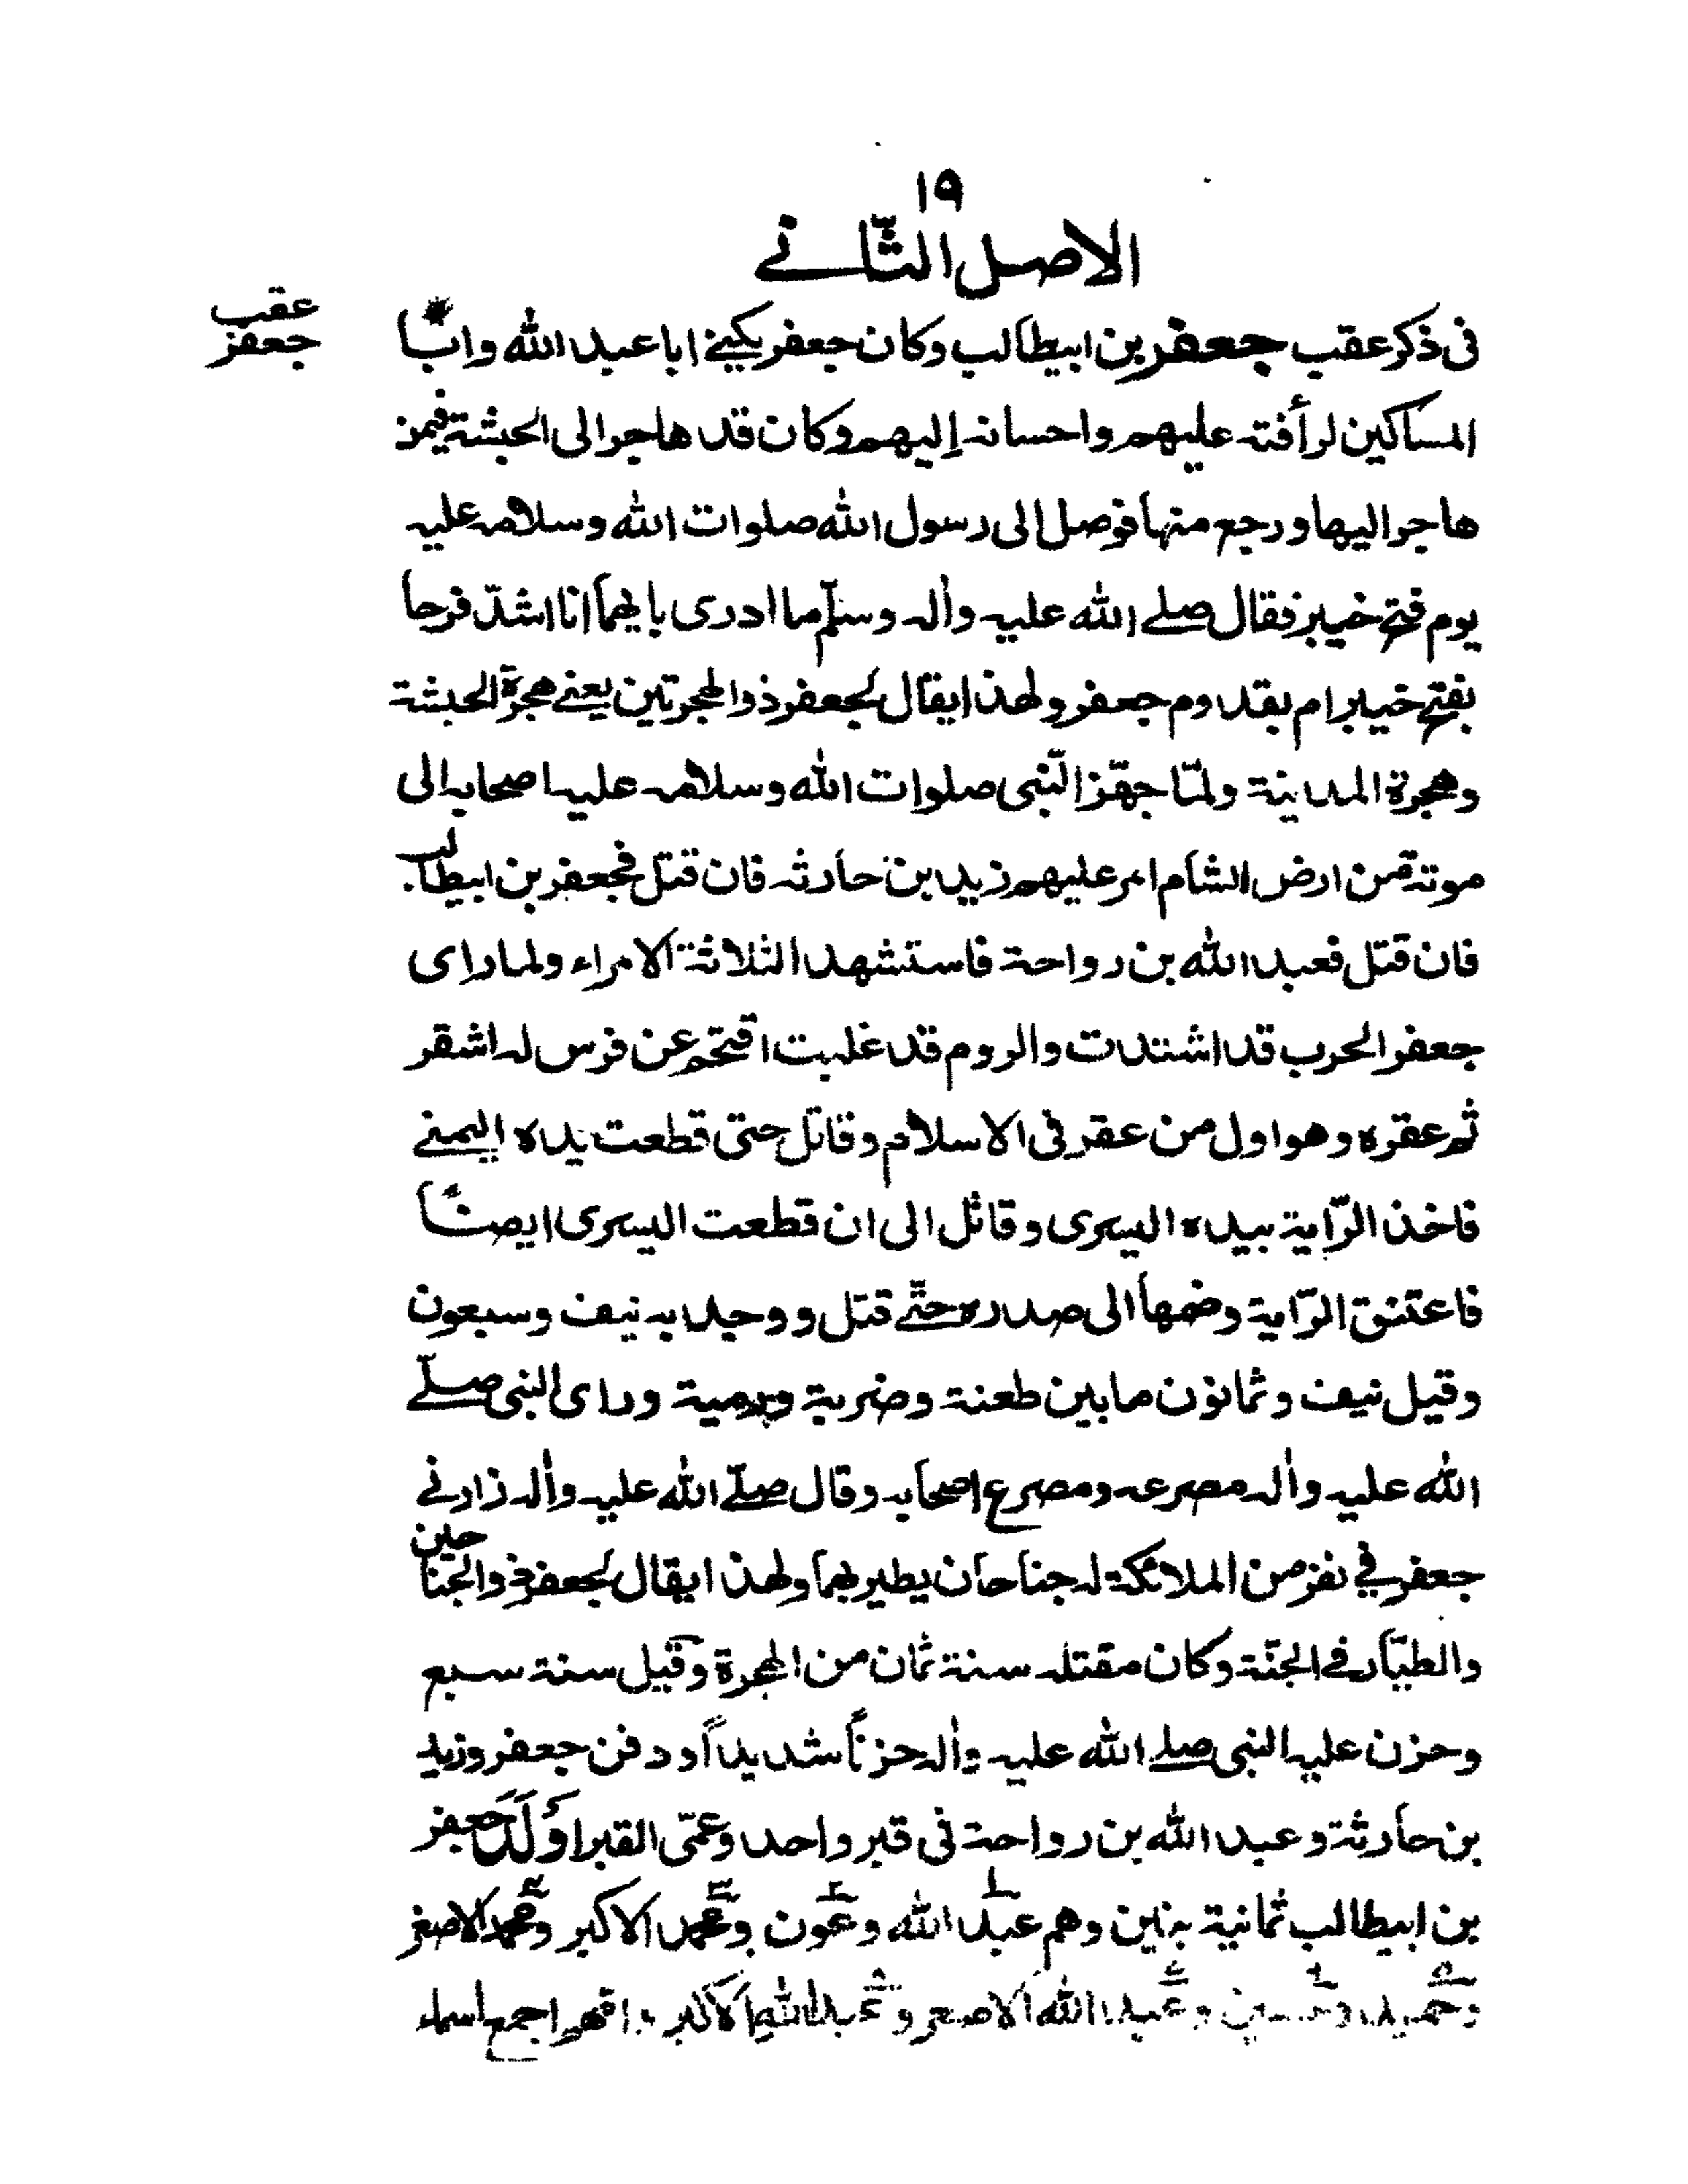 ١٩
الاصل الثّانے
عقب
جعفر
فى ذكر عقب جعفر بن ابيطالب وكان جعفر يكنے ابا عبد الله وابا
المساكين لرأفته عليهم واحسانه إليهم وكان قد هاجر الى الحبشة فيمن
هاجر اليها ورجع منها فوصل الى رسول الله صلوات الله وسلامه عليه
يوم فتح خيبر فقال صلے الله عليه واله وسلّم ما ادرى بايهما انا اشدّ فرحا
بفتح خيبر ام بقدوم جعفر ولهذا يقال لجعفر ذو الهجرتين يعنے هجرة الحبشة
وهجرة المدينة ولمّا جهّز النّبى صلوات الله وسلامه عليه اصحابه الى
موتة من ارض الشام امر عليهم زيد بن حارثه فان قتل فجعفر بن ابيطالب
فان قتل فعبد الله بن رواحة فاستشهد الثلاثة الامراء ولما راى
جعفر الحرب قد اشتدت والروم قد غلبت اقتحم عن فرس له اشقر
ثم عقره وهو اول من عقر فى الاسلام وقاتل حتى قطعت يده اليمنے
فاخذ الرّاية بيده اليسرى وقاتل الى ان قطعت اليسرى ايضاً
فاعتنق الرّاية وضمها الى صدره حتّے قتل ووجد به نيف وسبعون
وقيل نيف وثمانون ما بين طعنة وضربة ورمية وراى النبى صلّے
الله عليه واله مصرعه ومصرع اصحابه وقال صلّے الله عليه واله زارنے
جعفر في نفر من الملائكة له جناحان يطير بهما ولهذا يقال لجعفر ذو الجناحين
والطيّار فے الجنّة وكان مقتله سنة ثمان من الهجرة وقيل سنة سبع
وحزن عليه النبى صلے الله عليه واله حزناً شديداً ودفن جعفر وزيد
بن حارثة وعبد الله بن رواحة فى قبر واحد وعمّى القبر اولد جعفر
بن ابيطالب ثمانية بنين وهم عبد الله وعون ومحمد الاكبر ومحمد الاصغر
وحميد وحسين وعبد الله الاصغر وعبد الله الاكبر وامهم اجمع اسماء